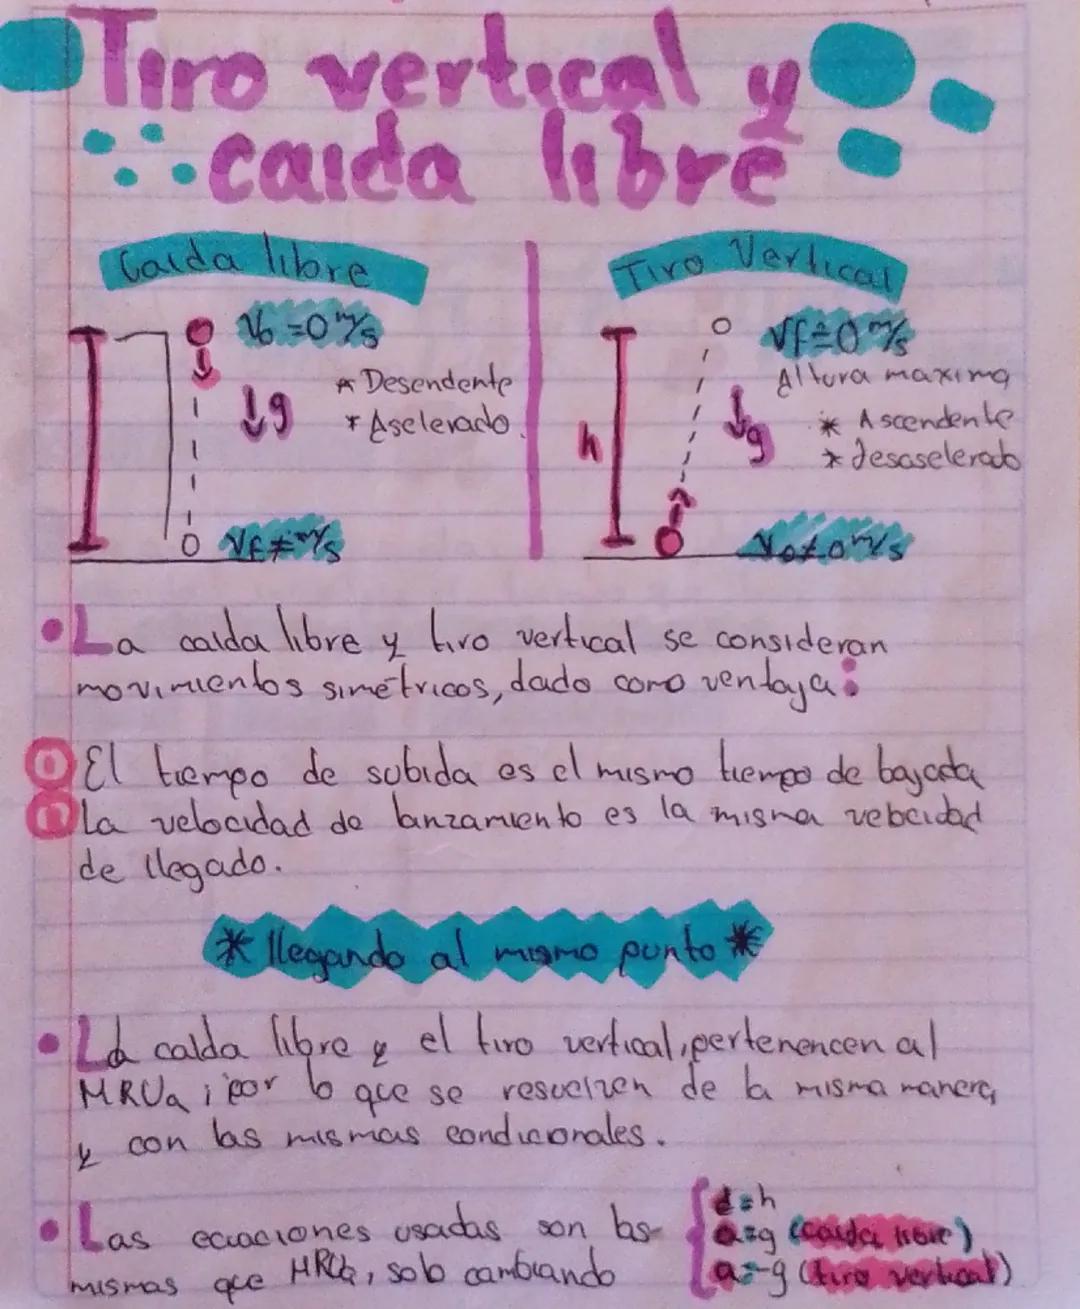 Tiro vertical y
caida libre
Caida libre
Vo = 0 m/s
* Desendente
↓g
* Aselerado.
Vf ≠ m/s
Tiro Vertical
Vf = 0 m/s
Altura maxima
* Ascendente
↓g
* desaselerado
h
Vo ≠ 0 m/s
• La caida libre y tiro vertical se consideran
movimientos simétricos, dado como ventaja:
El tiempo de subida es el mismo tiempo de bajada
La velocidad de lanzamiento es la misma velocidad
de llegado.
* llegando al mismo punto *
• La caida libre y el tiro vertical, pertenencen al
MRUa ; por lo que se resuelven de la misma manera,
y con las mismas condicionales.
• Las ecuaciones usadas son las
mismas que MRUa, solo cambiando
d=h
a=g (caida libre)
a=-g (tiro vertical)